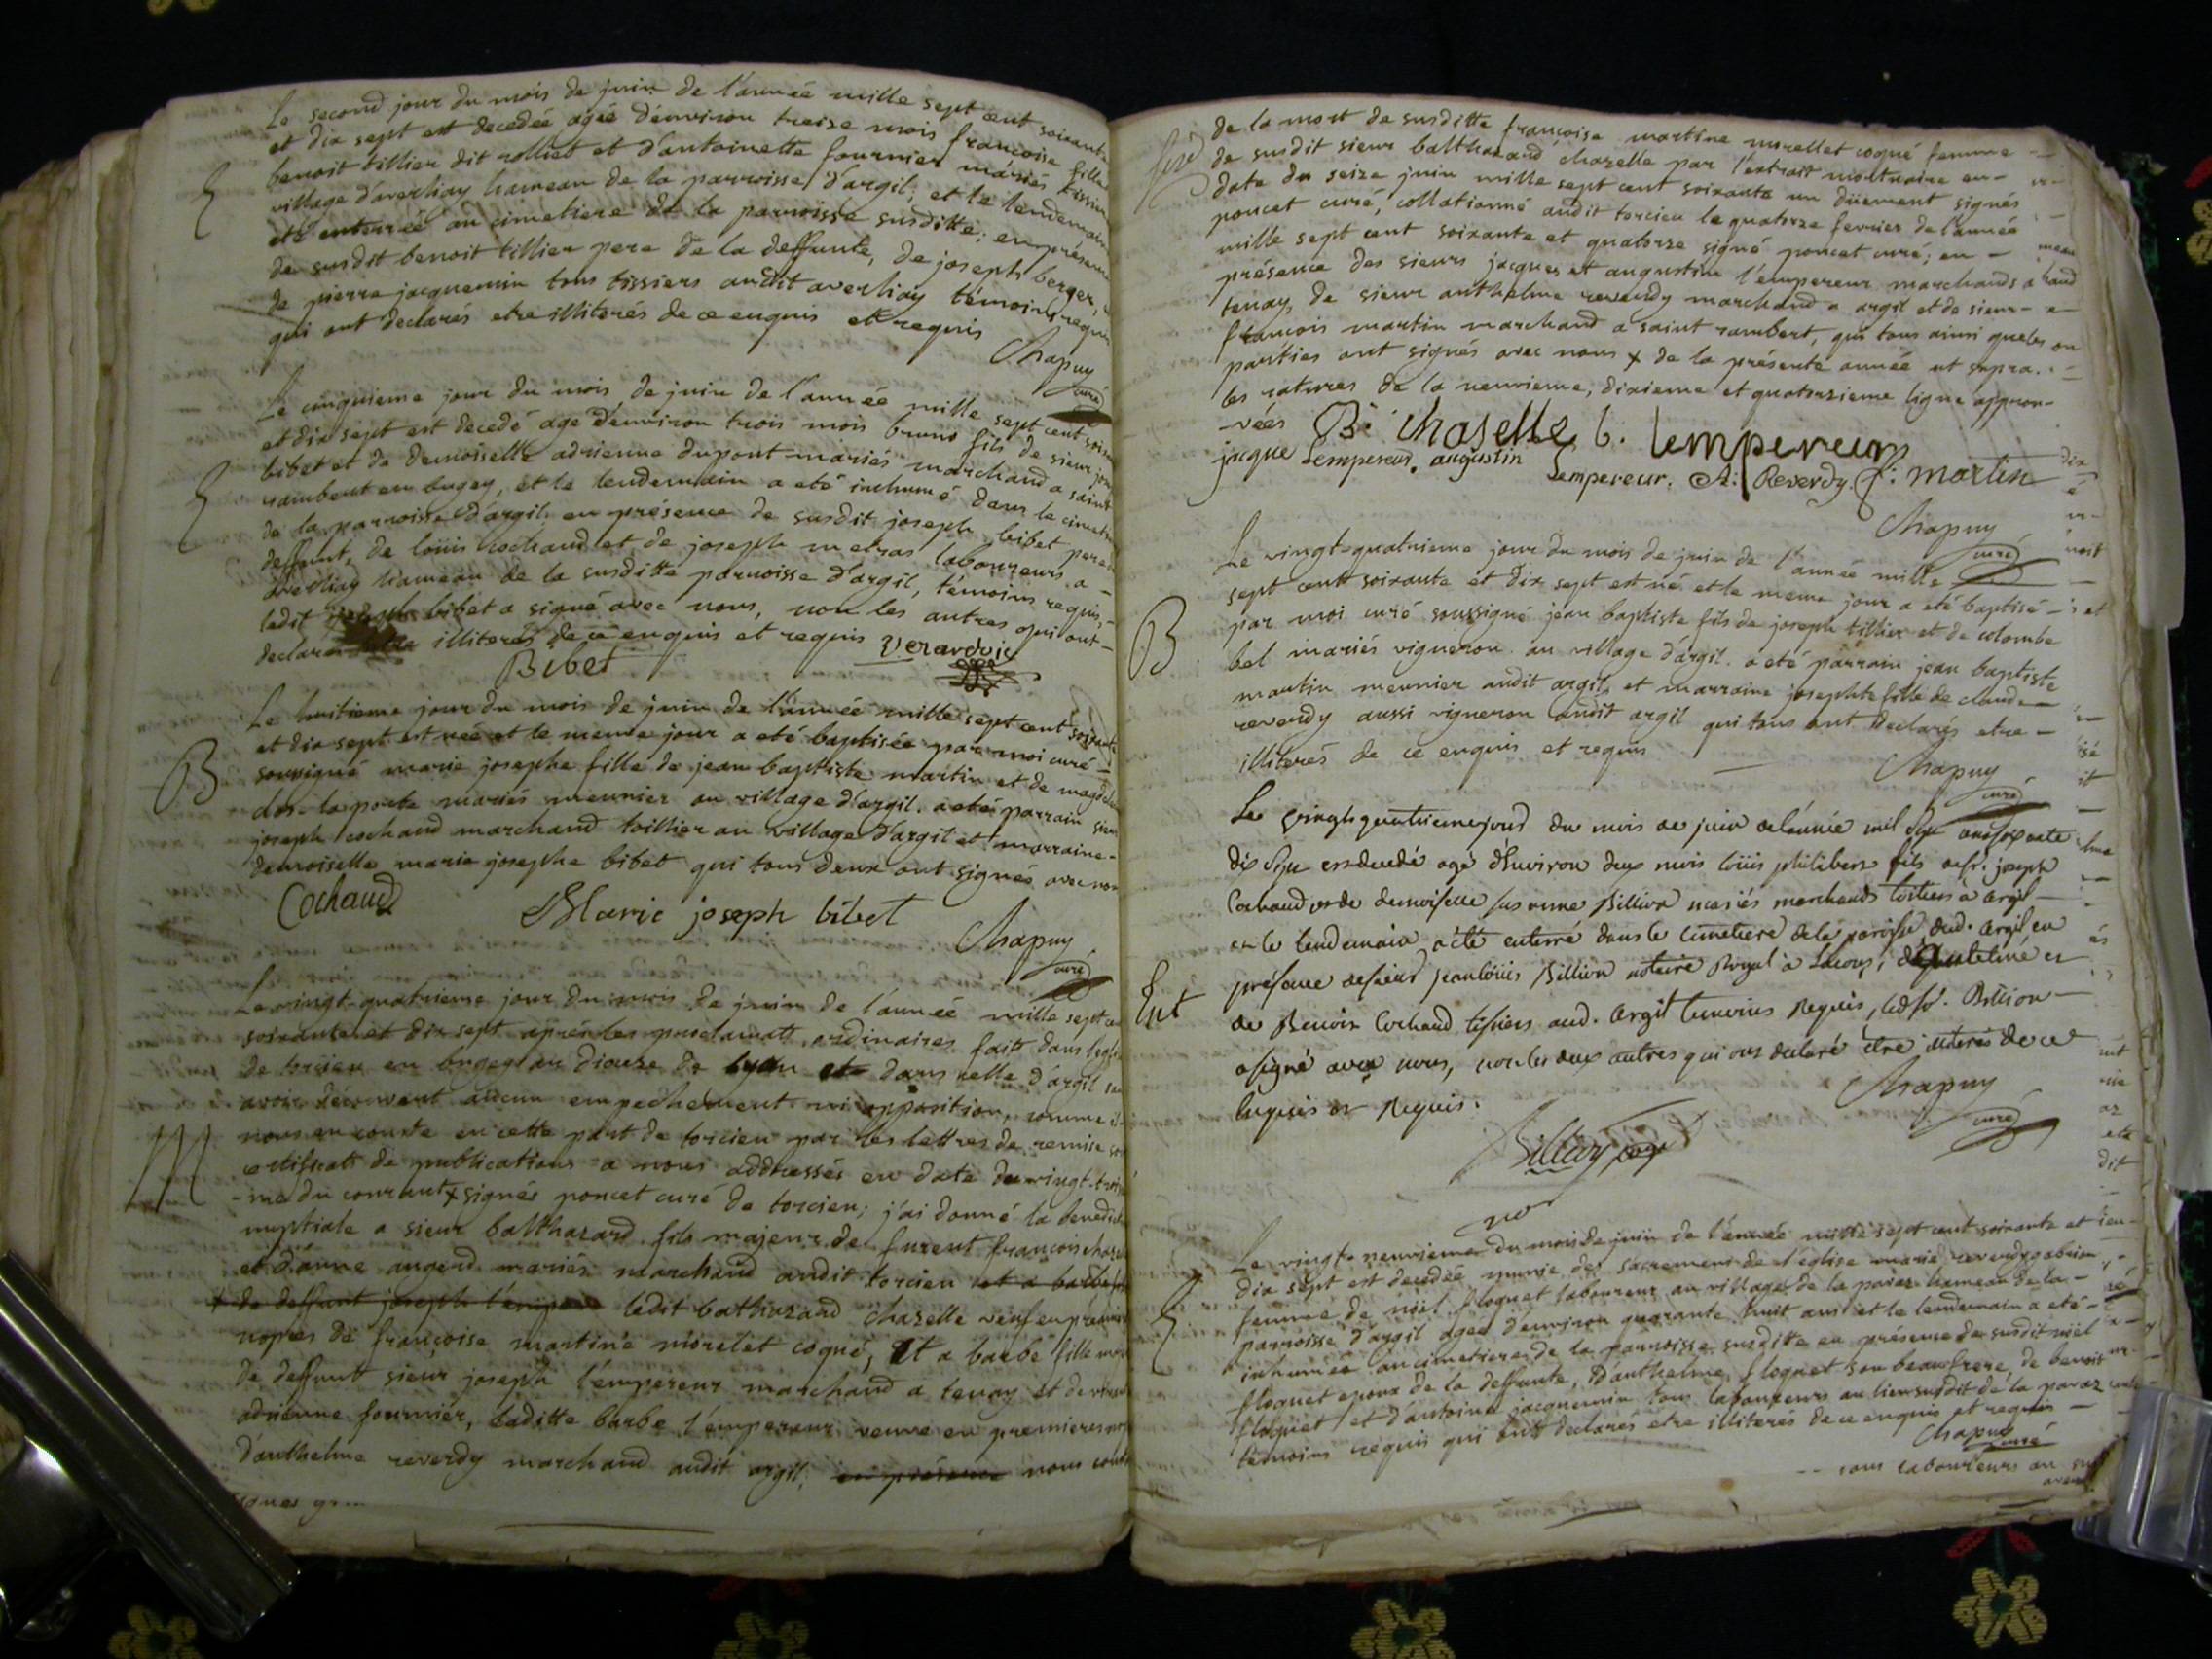 Le second jour du mois de juin de l'année mille sept cent soixante
et dix sept est decedée agée d'environ treize mois françoise fille
benoit tillier dit rolliet et d'antoinette fournier mariés tissier
village d'averliay hameau de la parroisse d'argil; et le lendemain
eté enterrée au cimetiere de la parroisse susditte; en présence
de susdit benoit tillier pere de la deffunte, de joseph berger,
de pierre jacquemin tous tissiers audit averliay témoins requis
qui ont declarés etre illiterés de ce enquis et requis
Chapuy
curé
Le cinquieme jour du mois de juin de l'année mille sept cent soix
et dix sept est decedé agé d'environ trois mois bruno fils de sieur jos
bibet et de demoiselle adrienne dupont mariés marchand a saint
rambert en bugey, et le lendemain a eté inhumé dans le cimetie
de la parroisse d'argil; en présence de susdit joseph bibet pere
deffunt, de loüis cochaud et de joseph metras laboureurs a -
averliay hameau de la susditte parroisse d'argil, témoins requis, -
ledit joseph bibet a signé avec nous, non les autres qui ont -
declarés illiterés de ce enquis et requis Verardvic
Bibet
Le huitieme jour du mois de juin de l'année mille sept cent soixante
B et dix sept est née et le meme jour a eté baptisée par moi curé -
soussigné marie josephe fille de jean baptiste martin et de magdelai
de la porte mariés meunier au village d'argil. a eté parrain sieur
joseph cochaud marchand toillier au village d'argil et marraine -
demoiselle marie josephe bibet qui tous deux ont signés avec nous
Cochaud Marie joseph bibet
Chapuy
curé
Le vingt-quatrieme jour du mois de juin de l'année mille sept ce
soixante et dix sept après les proclamatt ordinaires faitt dans l'eglis
de torcieu en bugey au diocese de lyon et dans celle d'argil sa
avoir découvert aucun empechement ni opposition, comme il
M nous en conste en cette part de torcieu par les lettres de remise
certificatt de publications a nous addressés en date du vingt-troi
-me du courant x signés poncet curé de torcieu; j'ai donné la benedict
nuptiale a sieur balthazard fils majeur de furent françois chaze
et d'anne augerd mariés marchand audit torcieu et a barbe
x de deffunt joseph l'empe ledit bathazard chazelle veuf en premier
nopces de françoise martine morellet cogné, et a barbe fille
de deffunt sieur joseph l'empereur marchand a tenay et de
adrienne fournier, laditte barbe l'empereur veuve en premieres
d'anthelme reverdy marchand audit argil; en présence nous cons
de la mort de susditte françoise martine morellet cogné femme -
de susdit sieur balthazard chazelle par l'extrait mortuaire en -
date du seize juin mille sept cent soixante un düement signés
poncet curé, collationné audit torcieu le quatorze fevrier de l'année
mille sept cent soixante et quatorze signé poncet curé; en -
présence des sieurs jacques et augustin l'empereur marchands a
tenay, de sieur anthelme reverdy marchand a argil et de sieur -
françois martin marchand a saint rambert, qui tous ainsi que les
parties ont signés avec nous x de la présente année ut supra.
les ratures de la neuvieme, dixieme et quatorzieme ligne approu-
-vées B. chaselle b. lempereur
jacque Lempereur. augustin Lempereur. A: Reverdy. f: martin
Chapuy
curé
Le vingt-quatrieme jour du mois de juin de l'année mille
sept cent soixante et dix sept est né et le meme jour a eté baptisé -
B par moi curé soussigné jean baptiste fils de joseph tillier et de colombe
bel mariés vigneron au village d'argil. a eté parrain jean baptiste
martin meunier audit argil, et marraine josephte fille de claude -
reverdy aussi vigneron audit argil qui tous ont declarés etre -
illiterés de ce enquis et requis
Chapuy
curé
Le vingt quatrieme jour du mois de juin de l'année mil sept cent soixante
dix sept est decedé agé d'Environ deux mois loüis philibert fils de sr. joseph
Cochaud et de demoiselle susanne Billion mariés marchands toiliers à Argil
et le lendemain a été enterré dans le cimetiere de la paroisse dud. Argil en
présence de sieur jean loüis Billion notaire Royal à Lacoux; d'Antelme et
Ent de Benoit Cochaud tissiers aud. Argil temoins Requis, led sr. Billion
a signé avec nous, non les deux autres qui ont declaré être illiterés de ce
Enquis et Requis.
Chapuy
curé
Billion
Le vingt-neuvieme du mois de juin de l'année mille sept cent soixante et
dix sept est decedée munie des sacremens de l'église marie reverdy gabrion
femme de niel floquet laboureur au village de la povaz hameau de la -
parroisse d'argil agée d'environ quarante huit ans et le lendemain a eté -
inhumée au cimetiere de la parroisse susditte en présence de susdit niel
floquet epoux de la deffunte, d'anthelme floquet son beaufrere, de benoit
floquet et d'antoine jacquemin tous laboureurs au lieu susdit de la povaz
témoins requis qui ont declarés etre illiterés de ce enquis et requis -
Chapuy
curé